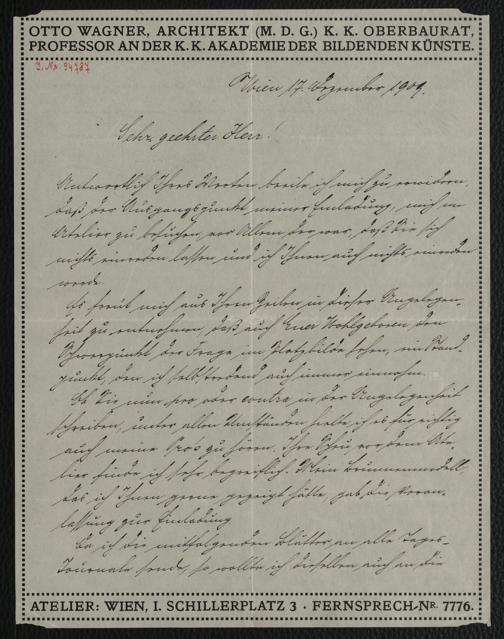 OTTO WAGNER, ARCHITEKT (M. D. G.) K. K. OBERBAURAT,
PROFESSOR AN DER K. K. AKADEMIE DER BILDENDEN KÜNSTE.
J. Nr. 94787
Wien, 17. Dezember 1909.
Sehr geehrter Herr!
Antwortlich Ihres Werten beeile ich mich zu erwidern,
daß der Ausgangspunkt meiner Einladung, mich im
Atelier zu besuchen, vor Allem der war, daß Sie sich
nichts einreden lassen und ich Ihnen auch nichts einreden
werde.
Es freut mich aus Ihren Zeilen in dieser Angelegen-
heit zu entnehmen, daß auch Euer Wohlgeboren den
Schwerpunkt der Frage im Platzbilde sehen, ein Stand-
punkt, den ich selbstredend auch immer einnahm.
Ob Sie nun pro oder contra in der Angelegenheit
schreiben, unter allen Umständen hielte ich es für richtig
auch meine Pros zu hören. Ihre Scheu vor dem Ate-
lier finde ich sehr begreiflich. Mein Brunnenmodell,
das ich Ihnen gerne gezeigt hätte, gab die Veran-
lassung zur Einladung.
Da ich die mitfolgenden Blätter an alle Tages-
Journale sende, so wollte ich dieselben auch an die
ATELIER: WIEN, I. SCHILLERPLATZ 3 · FERNSPRECH-NR. 7776.